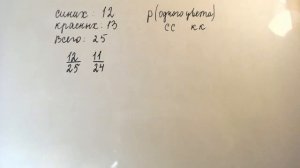 синих: 12
красных: 13
всего: 25
12/25 11/24
P(одного цвета)
сс кк